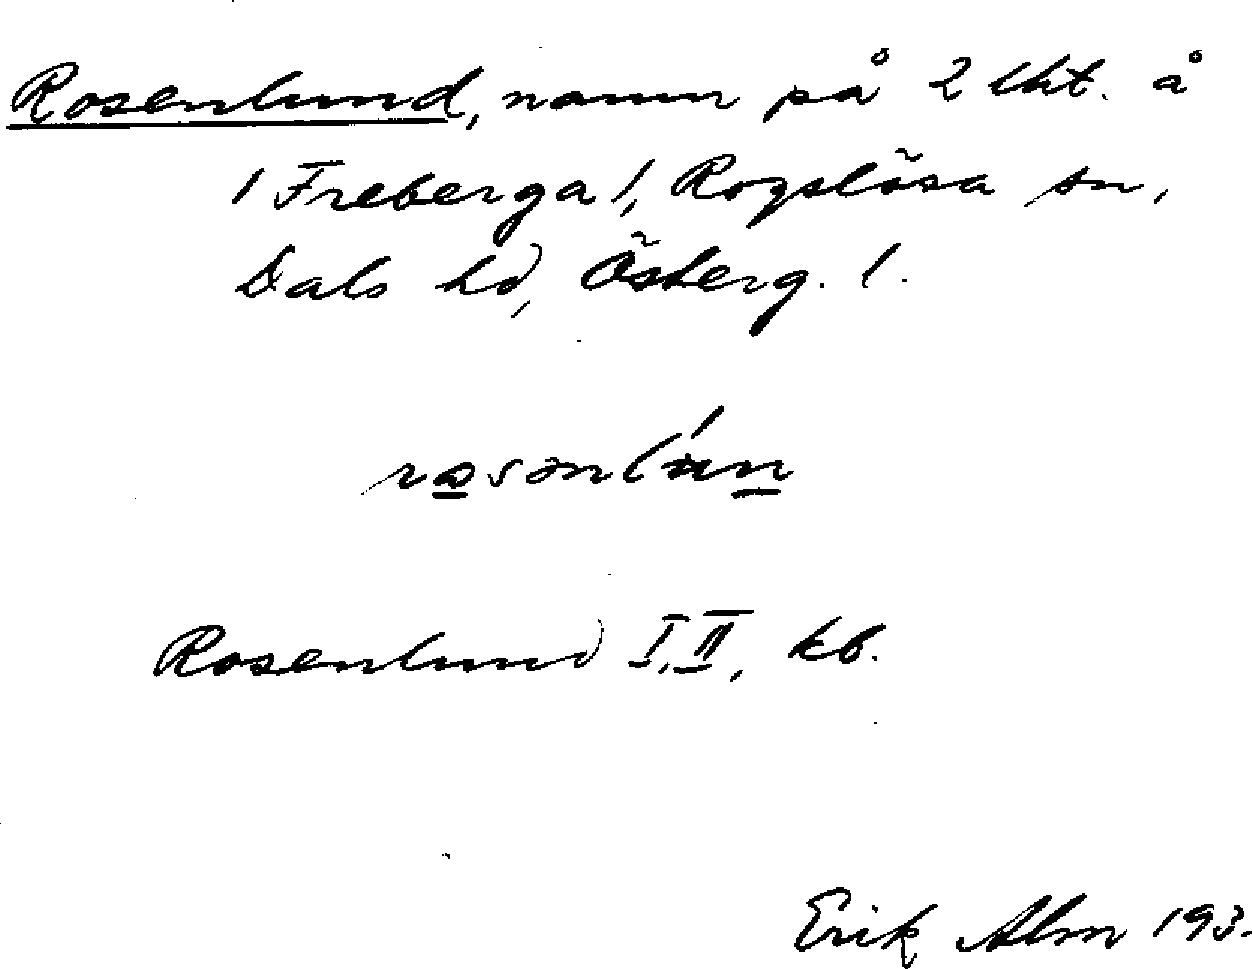 Rosenlund, namn på 2 lht. å
/Freberga/, Rogslösa sn,
Dals hd, Österg. l.
Rosenlund I, II, kb.
Erik Alm 193.